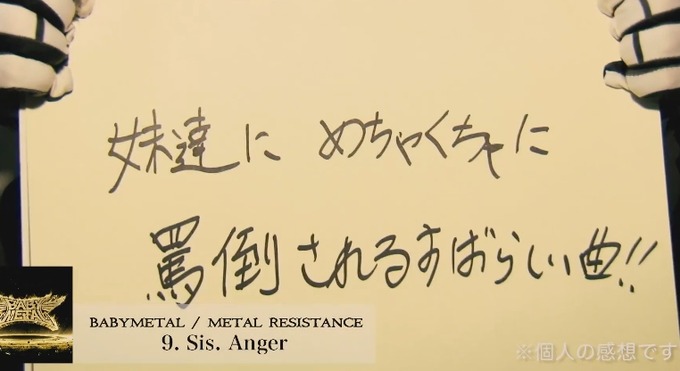 妹達に めちゃくちゃに
罵倒されるすばらしい曲!!
BABY
METAL
BABYMETAL / METAL RESISTANCE
9. Sis. Anger
※個人の感想です